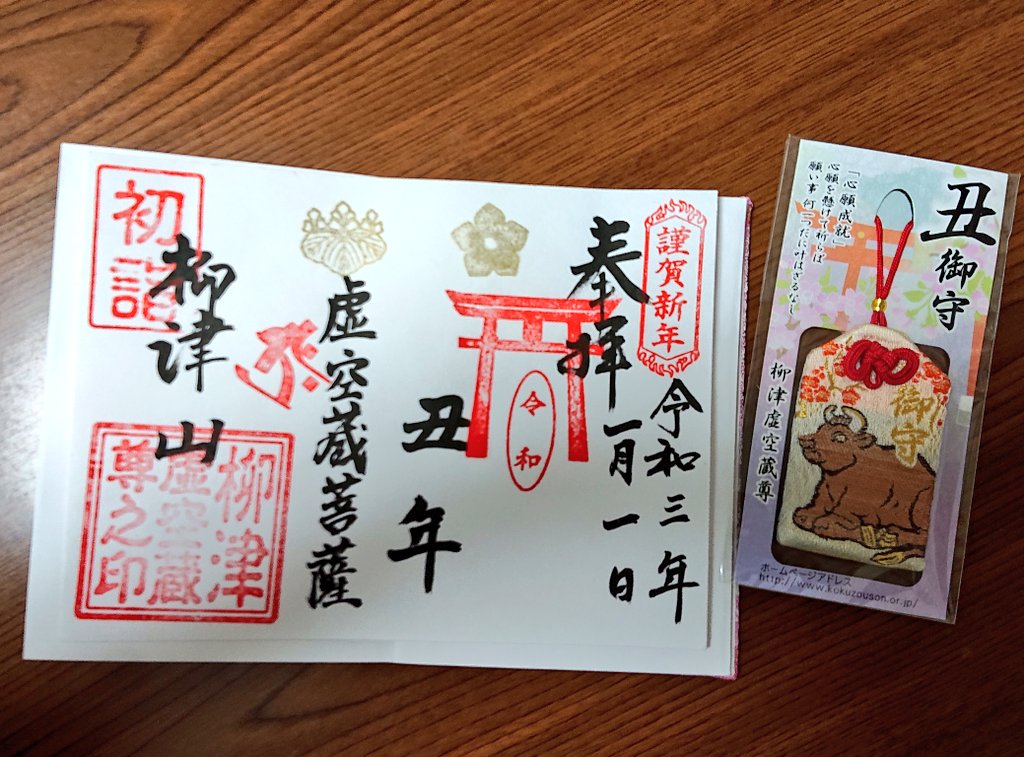 謹賀新年
奉拝
令和三年
一月一日
令和
丑年
虚空蔵菩薩
初詣
柳津山
柳津
虚空蔵
尊之印
丑御守
「心願成就」
心願を懸けて祈らば
願い事何一つだに叶はざるなし
御守
柳津虚空蔵尊
ホームページアドレス
http://www.kokuzouson.or.jp/